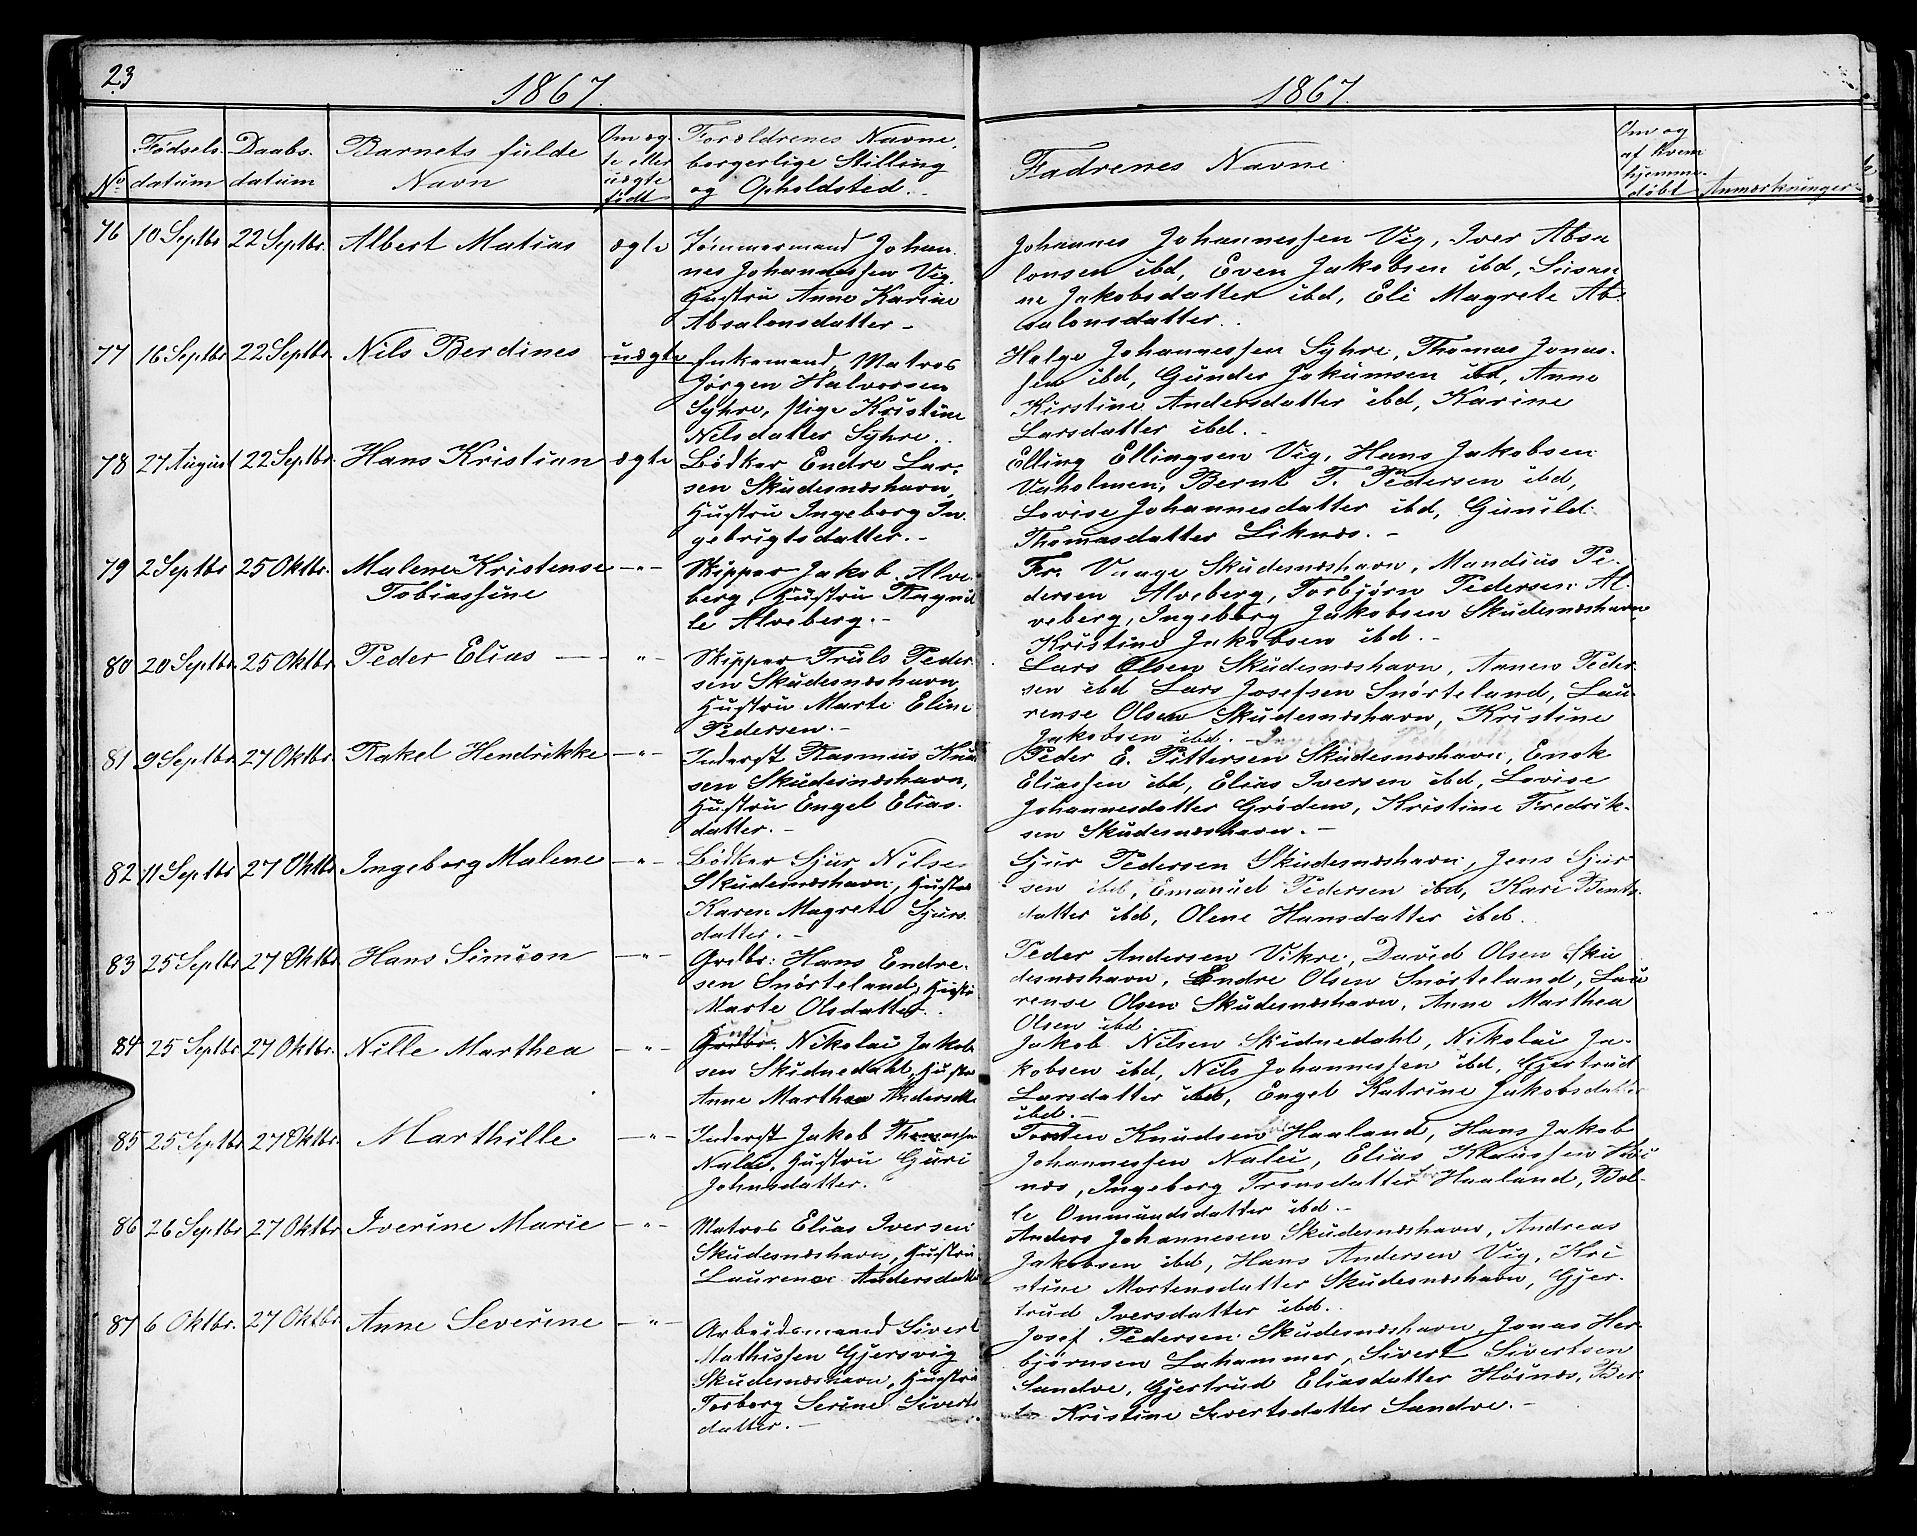 23
1867.
1867.
No
Fødsels-
datum
Daabs-
datum
Barnets fulde
Navn
Om æg-
te eller
uægte
født
Forældrenes Navne,
borgerlige Stilling
og Opholdsted.
Fadrenes Navne
Om og
af hvem
hjemme-
døbt
Anmærkninger
76 10 Septbr 22 Septbr. Albert Matias ægte
Tømmermand Johan-
nes Johannessen Vig,
Hustru Anne Karine
Absalonsdatter -
Johannes Johannessen Vig, Iver Absa
lonsen ibd, Even Jakobsen ibd, Susan
ne Jakobsdatter ibd, Eli Magrete Ab-
salonsdatter.
77 16 Septbr 22 Septbr Nils Berdines uægte
Enkemand, Matros
Jørgen Halvorsen
Syhre, Pige Kristine
Nilsdatter Syhre.
Helge Johannessen Syhre, Thomas Jonas-
sen ibd, Gunder Jokumsen ibd, Anne
Kirstine Andersdatter ibd, Karine
Larsdatter ibd. -
78 27 August 22 Septbr. Hans Kristian ægte
Bødker Endre Lar-
sen Skudesnæshavn,
Hustru Ingeborg In-
gebrigtsdatter. -
Elling Ellingsen Vig, Hans Jakobsen
Vaholmen, Bernt T. Pedersen ibd,
Lovise Johannesdatter ibd, Gunild
Thomasdatter Liknæs. -
79 2 Septbr 25 Oktbr. Malene Kristense
Tobiassine -"-
Skipper Jakob Alve-
berg, Hustru Ragnil
le Alveberg. -
Fr. Vaage Skudesnæshavn, Mandius Pe-
dersen Alveberg, Torbjørn Pedersen Al-
veberg, Ingeborg Jakobsen Skudesnæshavn
Kristine Jakobsen ibd. -
80 20 Septbr 25 Oktbr Peder Elias -"-
Skipper Truls Peder-
sen Skudesnæshavn,
Hustru Marte Eline
Pedersen. -
Lars Olsen Skudesnæshavn, Annen Peder-
sen ibd Lars Josefsen Snørteland, Lau-
rense Olsen Skudesnæshavn, Kristine
Jakobsen ibd. -
81 9 Septbr 27 Oktbr. Rakel Hendrikke -"-
Inderst Rasmus Knud
sen Skudesnæshavn,
Hustru Engel Elias-
datter. -
Peder E. Pittersen Skudesnæshavn, Enok
Eliassen ibd, Elias Iversen ibd, Lovise
Johannesdatter Grødem, Kristine Fredrik-
sen Skudesnæshavn. -
82 11 Septbr 27 Oktbr Ingeborg Malene -"-
Bødker Sjur Nilse-
Skudesnæshavn, Hustru
Karen Magrete Sjurs
datter. -
Sjur Pedersen Skudesnæshavn, Jens Sjur
sen ibd, Emanuel Pedersen ibd, Kari Bents-
datter ibd, Olene Hansdatter ibd.
83 25 Septbr 27 Oktbr. Hans Simeon -"-
Grdbr: Hans Endre-
sen Snørteland, Hustru
Marte Olsdatter.
Peder Andersen Vikre, David Olsen Sku
desnæshavn, Endre Olsen Snørteland, Lau
rense Olsen Skudesnæshavn, Anne Marthea
Olsen ibd
84 25 Septbr 27 Oktbr. Nille Marthea -"-
Grdbr. Nikolai Jakob
sen Skudnedahl, Hustru
Anne Marthea Andersdtr
Jakob Nilsen Skudnedahl, Nikolai Ja-
kobsen ibd, Nils Johannessen ibd, Gjertrud
Larsdatter ibd, Engel Katrine Jakobsdatter
ibd. -
85 25 Septbr 27 Oktbr. Marthille -"-
Inderst Jakob Thomassen
Nalei, Hustru Guri
Johnsdatter.
Torsten Knudsen Haaland, Hans Jakob
Johannessen Nalei, Elias Klaussen
næs, Ingeborg Tronsdatter Haaland, Bol-
le Ommundsdatter ibd. -
86 26 Septbr 27 Oktbr Iverine Marie -"-
Matros Elias Iversen
Skudesnæshavn, Hustru
Laurense Andersdatter
Anders Johannesen Skudesnæshavn, Andreas
Jakobsen ibd, Hans Andersen Vig, Kri
stine Mortensdatter Skudesnæshavn, Gjer-
trud Iversdatter ibd.
87 6 Oktbr. 27 Oktbr. Anne Severine -"-
Arbeidsmand Sivert
Mathissen Gjersvig
Skudesnæshavn, Hustru
Torborg Serine Siverts
datter. -
Josef Pedersen Skudesnæshavn, Jonas Her-
bjørnsen Lahammer, Sivert Sivertsen
Sandve, Gjertrud Eliasdatter Høinæs, Ber-
te Kristine Sivertsdatter Sandve. -